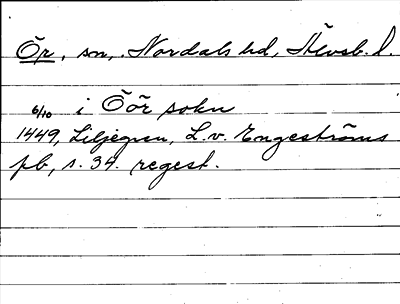 Ör, sn, Nordals hd, Älvsb. l.
6/10 i Öör sokn
1449, Liljegren, L. v. Engeströms
pb, s. 34. regest.